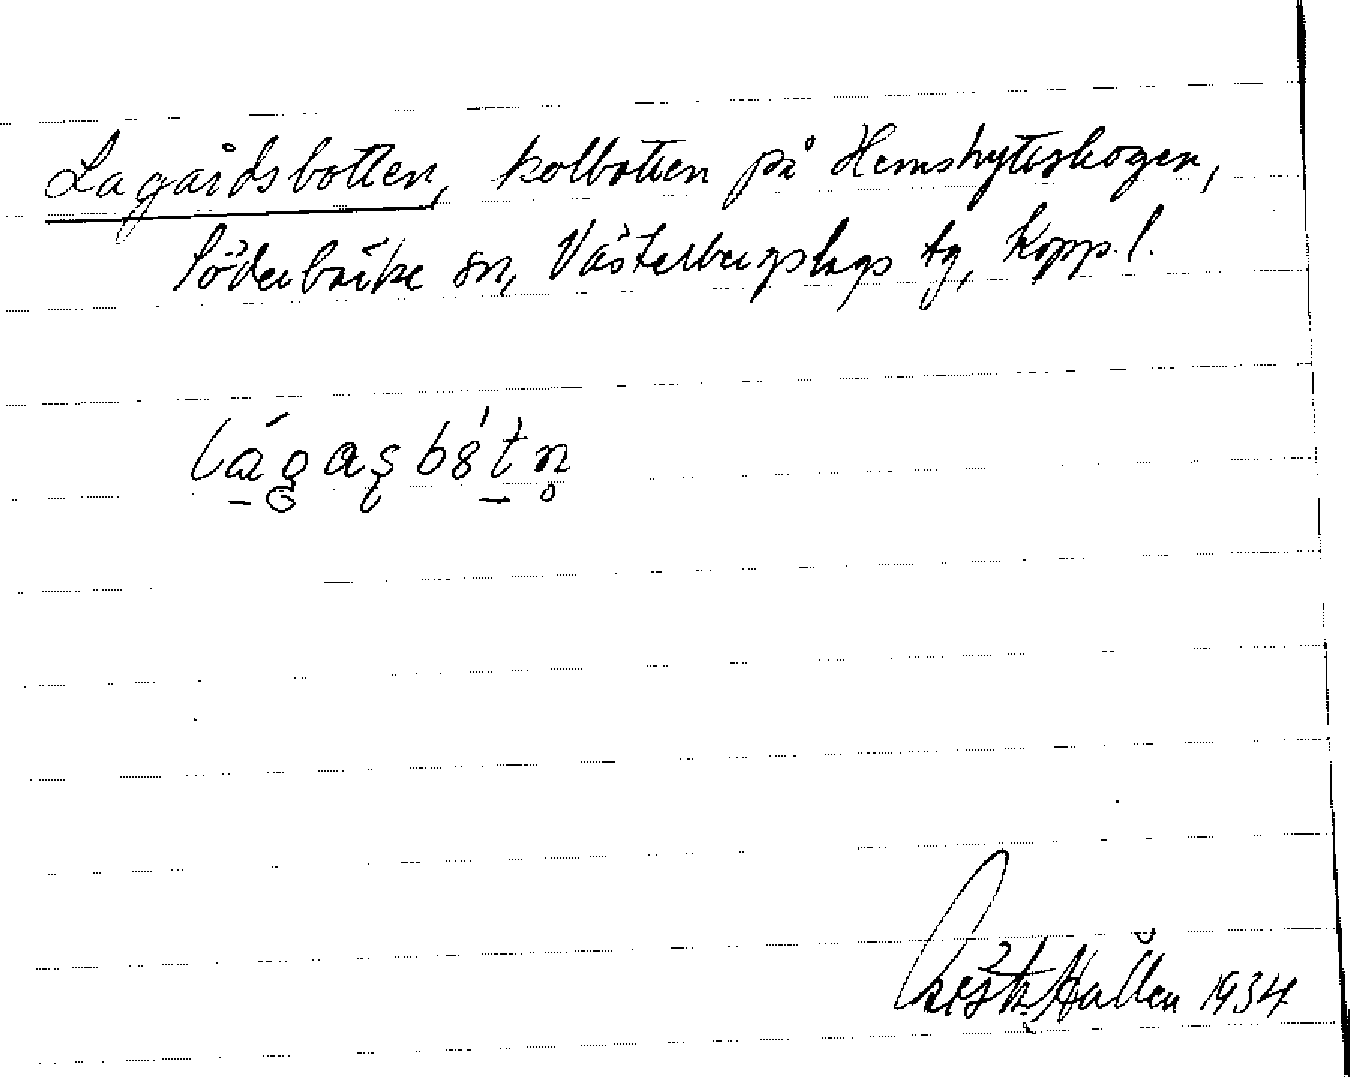 Lagårdsbotten, kolbotten på Hemshytteskogen,
Söderbärke sn, Västerbergslags tg, Kopp. l.
lágasbótn
Hallén 1934